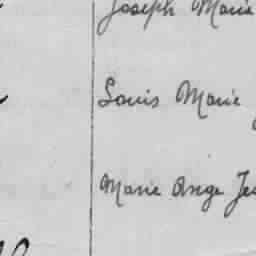 Joseph Marie
Louis Marie
Marie Ange